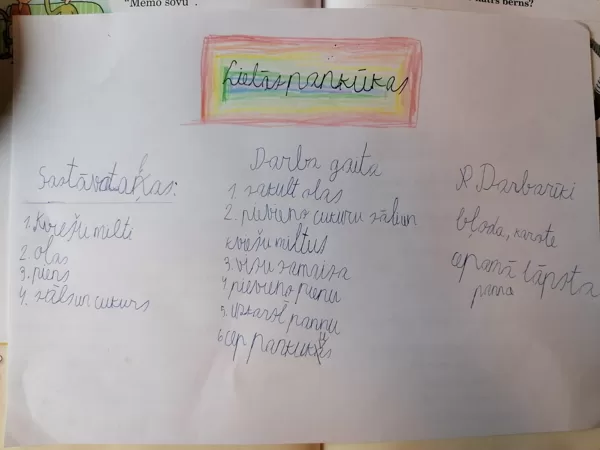 "Memo sovu".
katrs bērns?
Lielās pankūkas
Sastāvdaļas:
1. Kviešu milti
2. olas
3. piens
4. sāls un cukurs
Darba gaita
1. sakult olas
2. pievieno cukuru sāli un
kviešu miltus
3. visu samaisa
4. pievieno pienu
5. uzkarsē pannu
6. cep pankūkas
Darbarīki
bļoda, karote
cepamā lāpsta
panna